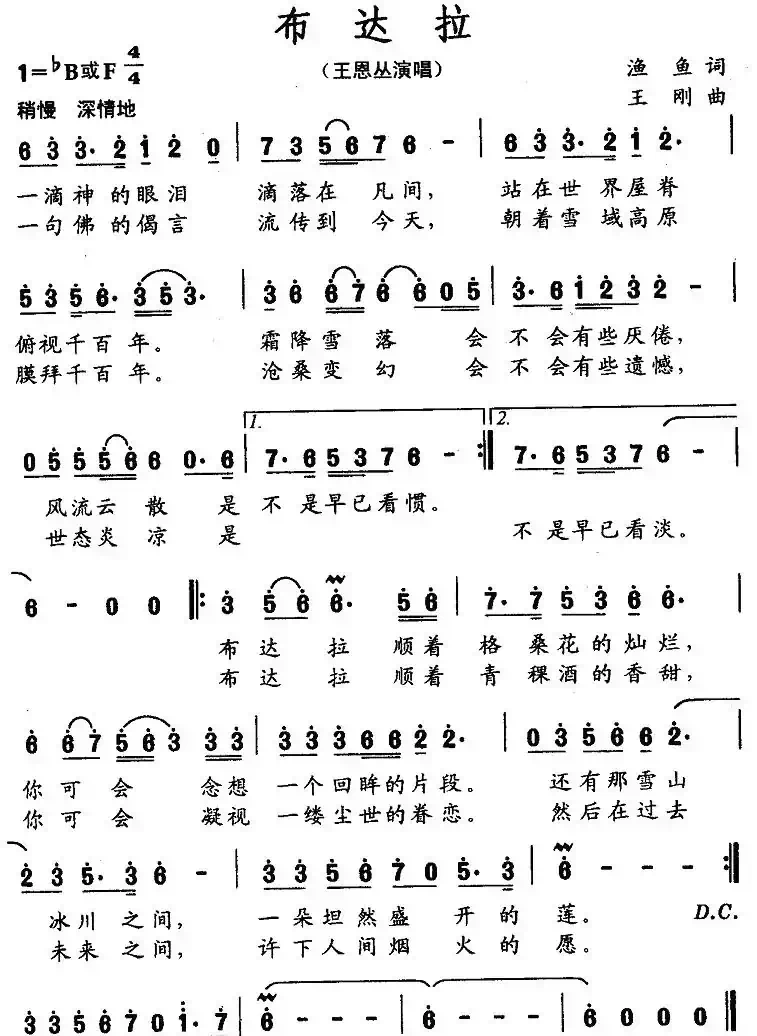 布达拉
1=♭B或F 4/4
（王恩丛演唱）
渔 鱼 词
稍慢 深情地
王 刚 曲
6 3 3· 2 1 2 0 | 7 3 5 6 7 6 - | 6 3 3· 2 1 2·
一滴神 的眼泪 滴落在 凡间， 站在世 界屋脊
一句佛 的偈言 流传到 今天， 朝着雪 域高原
5 3 5 6· 3 5 3· | 3 6 6 7 6 6 0 5 | 3· 6 1 2 3 2 -
俯视千百 年。 霜降雪 落 会 不 会有些厌倦，
膜拜千百 年。 沧桑变 幻 会 不 会有些遗憾，
1. 2.
0 5 5 5 6 6 0· 6 | 7· 6 5 3 7 6 - :| 7· 6 5 3 7 6 -
风流云 散 是 不 是早已看惯。
世态炎 凉 是 不 是早已看淡。
6 - 0 0 |: 3 5 6 6· 5 6 | 7· 7 5 3 6 6·
布 达 拉 顺着 格 桑花的灿烂，
布 达 拉 顺着 青 稞酒的香甜，
6 6 7 5 6 3 3 3 | 3 3 3 6 6 2 2· | 0 3 5 6 6 2·
你 可 会 念想 一个回眸的片段。 还有那雪山
你 可 会 凝视 一缕尘世的眷恋。 然后在过去
2 3 5· 3 6 - | 3 3 5 6 7 0 5· 3 | 6 - - - :|
冰川 之间， 一朵坦然盛 开的 莲。 D.C.
未来 之间， 许下人间烟 火的 愿。
3 3 5 6 7 0 1· 7 | 6 - - - | 6 - - - | 6 0 0 0